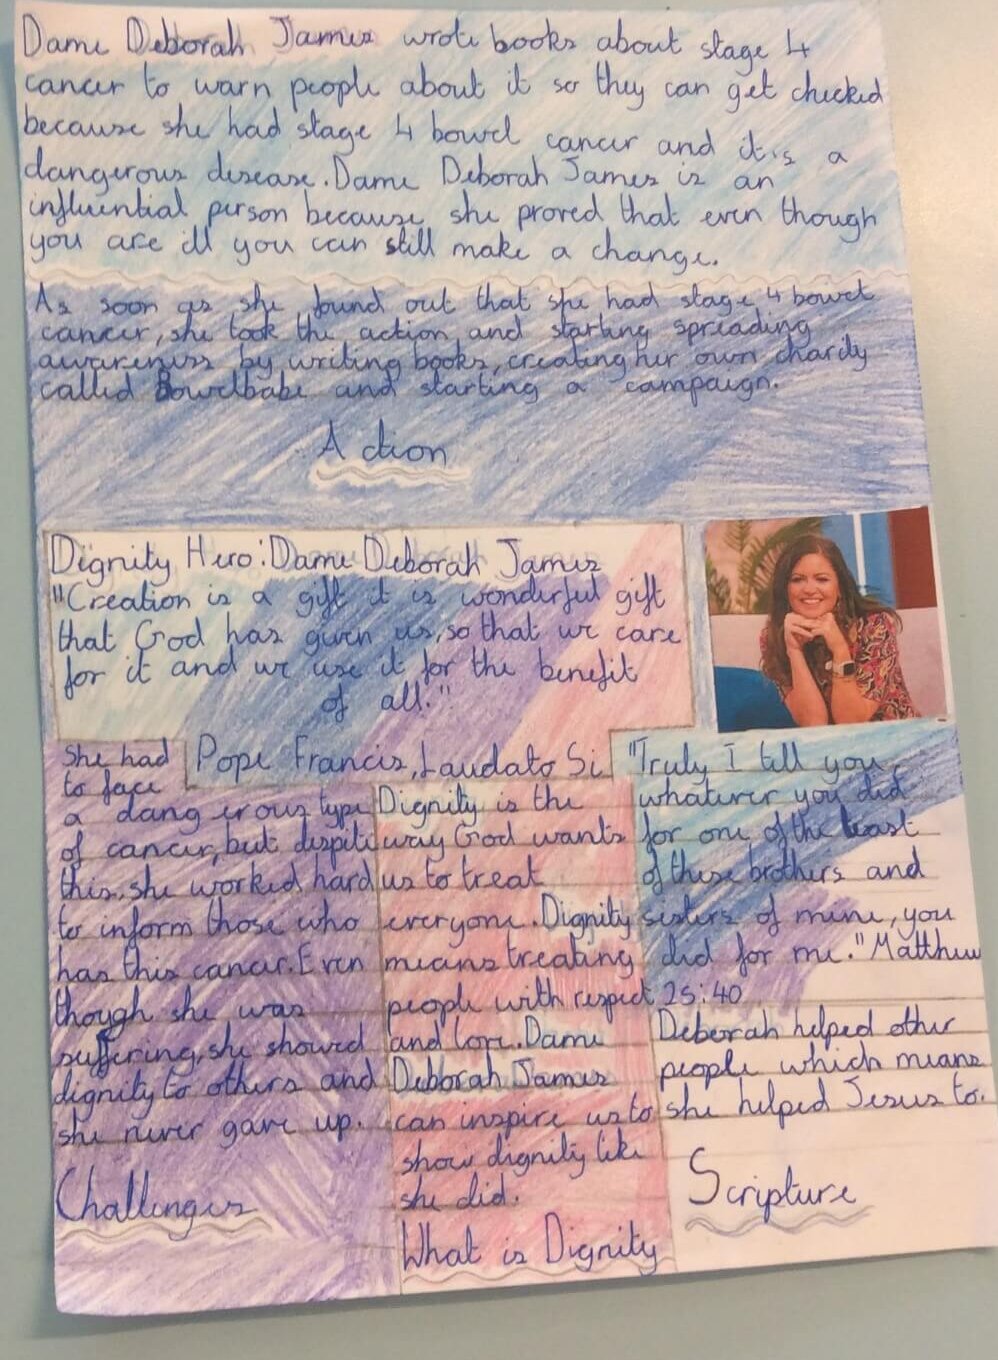 Dame Deborah James wrote books about stage 4
cancer to warn people about it so they can get checked
because she had stage 4 bowel cancer and it is a
dangerous disease. Dame Deborah James is an
influential person because she proved that even though
you are ill you can still make a change.
As soon as she found out that she had stage 4 bowel
cancer, she took the action and starting spreading
awareness by writing books, creating her own charity
called Bowelbabe and starting a campaign.
Action
Dignity Hero: Dame Deborah James
"Creation is a gift it is wonderful gift
that God has given us, so that we care
for it and we use it for the benefit
of all."
Pope Francis, Laudato Si
She had
to face
a dangerous type
of cancer, but despite
this, she worked hard
to inform those who
has this cancer. Even
though she was
suffering, she showed
dignity to others and
she never gave up.
Challenges
Dignity is the
way God wants
us to treat
everyone. Dignity
means treating
people with respect
and love. Dame
Debborah James
can inspire us to
show dignity like
she did.
What is Dignity
"Truly I tell you,
whatever you did
for one of the least
of these brothers and
sisters of mine, you
did for me." Matthew
25:40
Deborah helped other
people which means
she helped Jesus to.
Scripture